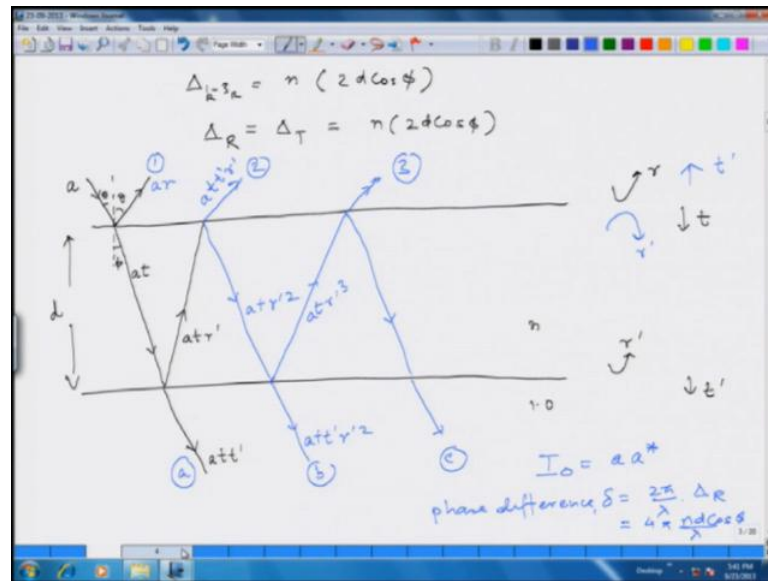 23-09-2013 - Windows Journal
File Edit View Insert Actions Tools Help
Page Width
B I
Δ = n (2dcosϕ)
Δ_R = Δ_T = n(2dcosϕ)
① ② ③
a ar att'r' r t'
θ' θ r' t
ϕ
at
d atr' atr'2 atr'3
n r'
1.0 t'
att' att'r'2
ⓐ ⓑ ⓒ
I_0 = aa*
phase difference, δ = 2π/λ . Δ_R
= 4π ndcosϕ/λ
Desktop 5:41 PM
9/23/2013